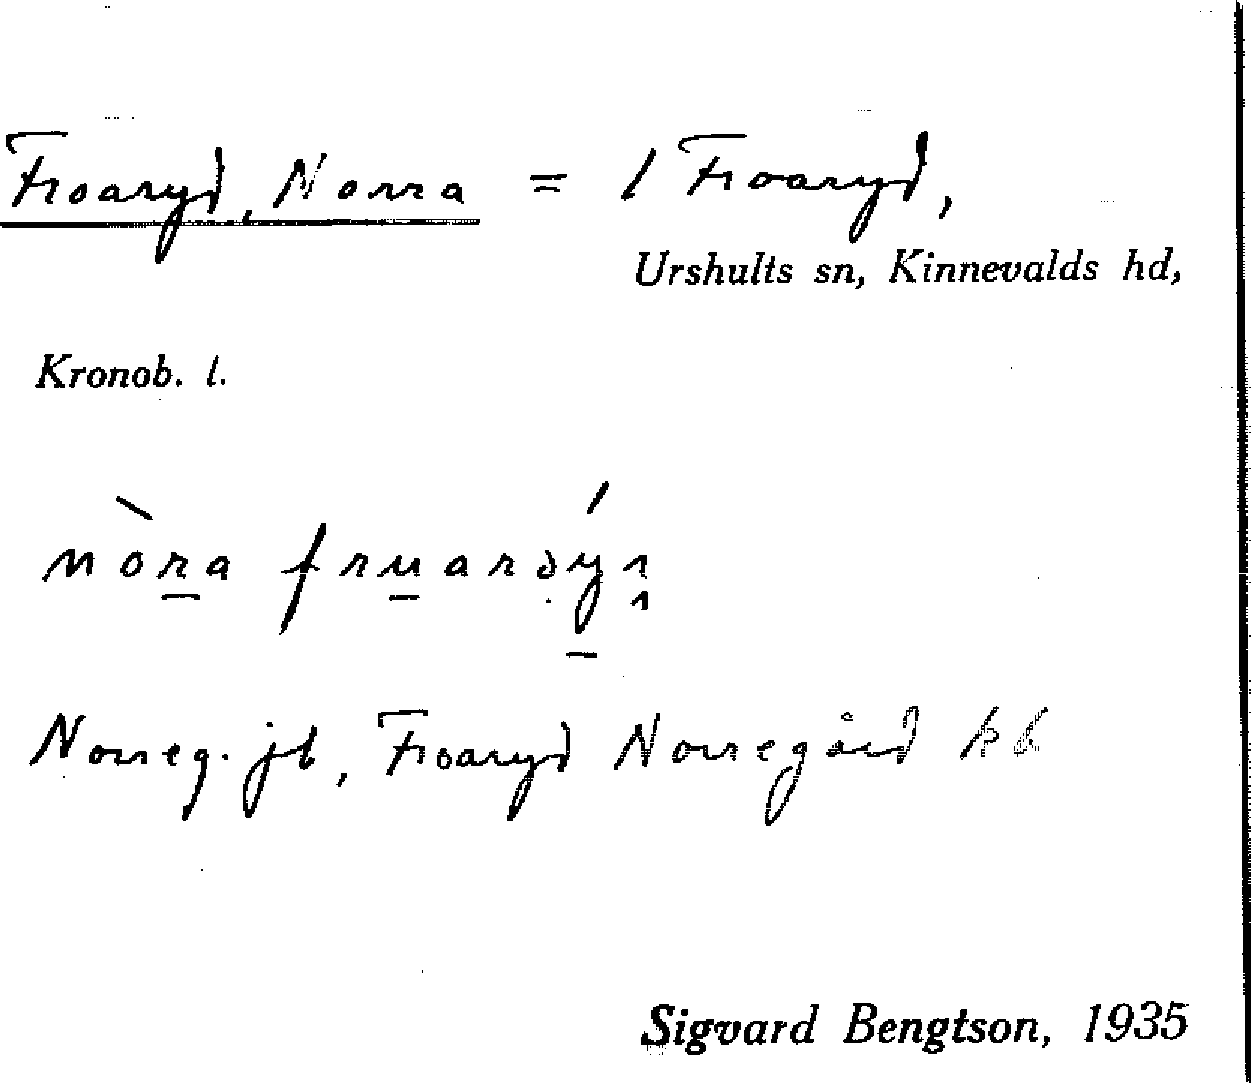 Froaryd, Norra = 1 Froaryd,
Urshults sn, Kinnevalds hd,
Kronob. l.
nòra fruarýı
Norreg. jb, Froaryd Norregård kb
Sigvard Bengtson, 1935